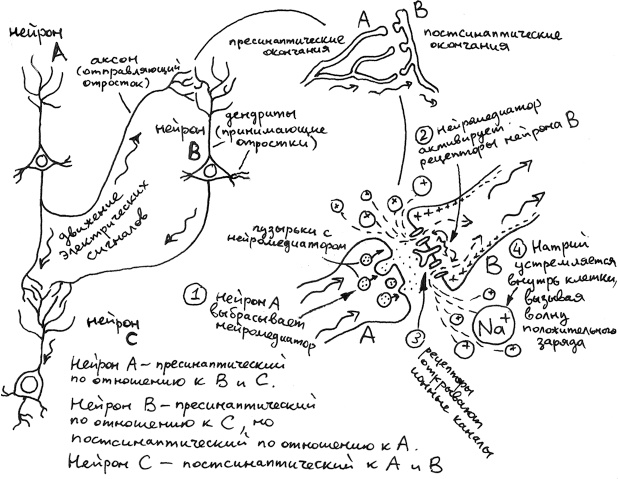 нейрон
А
аксон
(отправляющий
отросток)
нейрон
В
дендриты
(принимающие
отростки)
движение
электрических
сигналов
нейрон
С
пресинаптические
окончания
А
В
постсинаптические
окончания
② Нейромедиатор
активирует
рецепторы нейрона В
пузырьки с
нейромедиатором
① Нейрон А
выбрасывает
нейромедиатор
А
В
③ рецепторы
открывают
ионные каналы
④ Натрий
устремляется
внутрь клетки,
вызывая
волну
положительного
заряда
Na+
Нейрон А – пресинаптический
по отношению к В и С.
Нейрон В – пресинаптический
по отношению к С, но
постсинаптический по отношению к А.
Нейрон С – постсинаптический к А и В